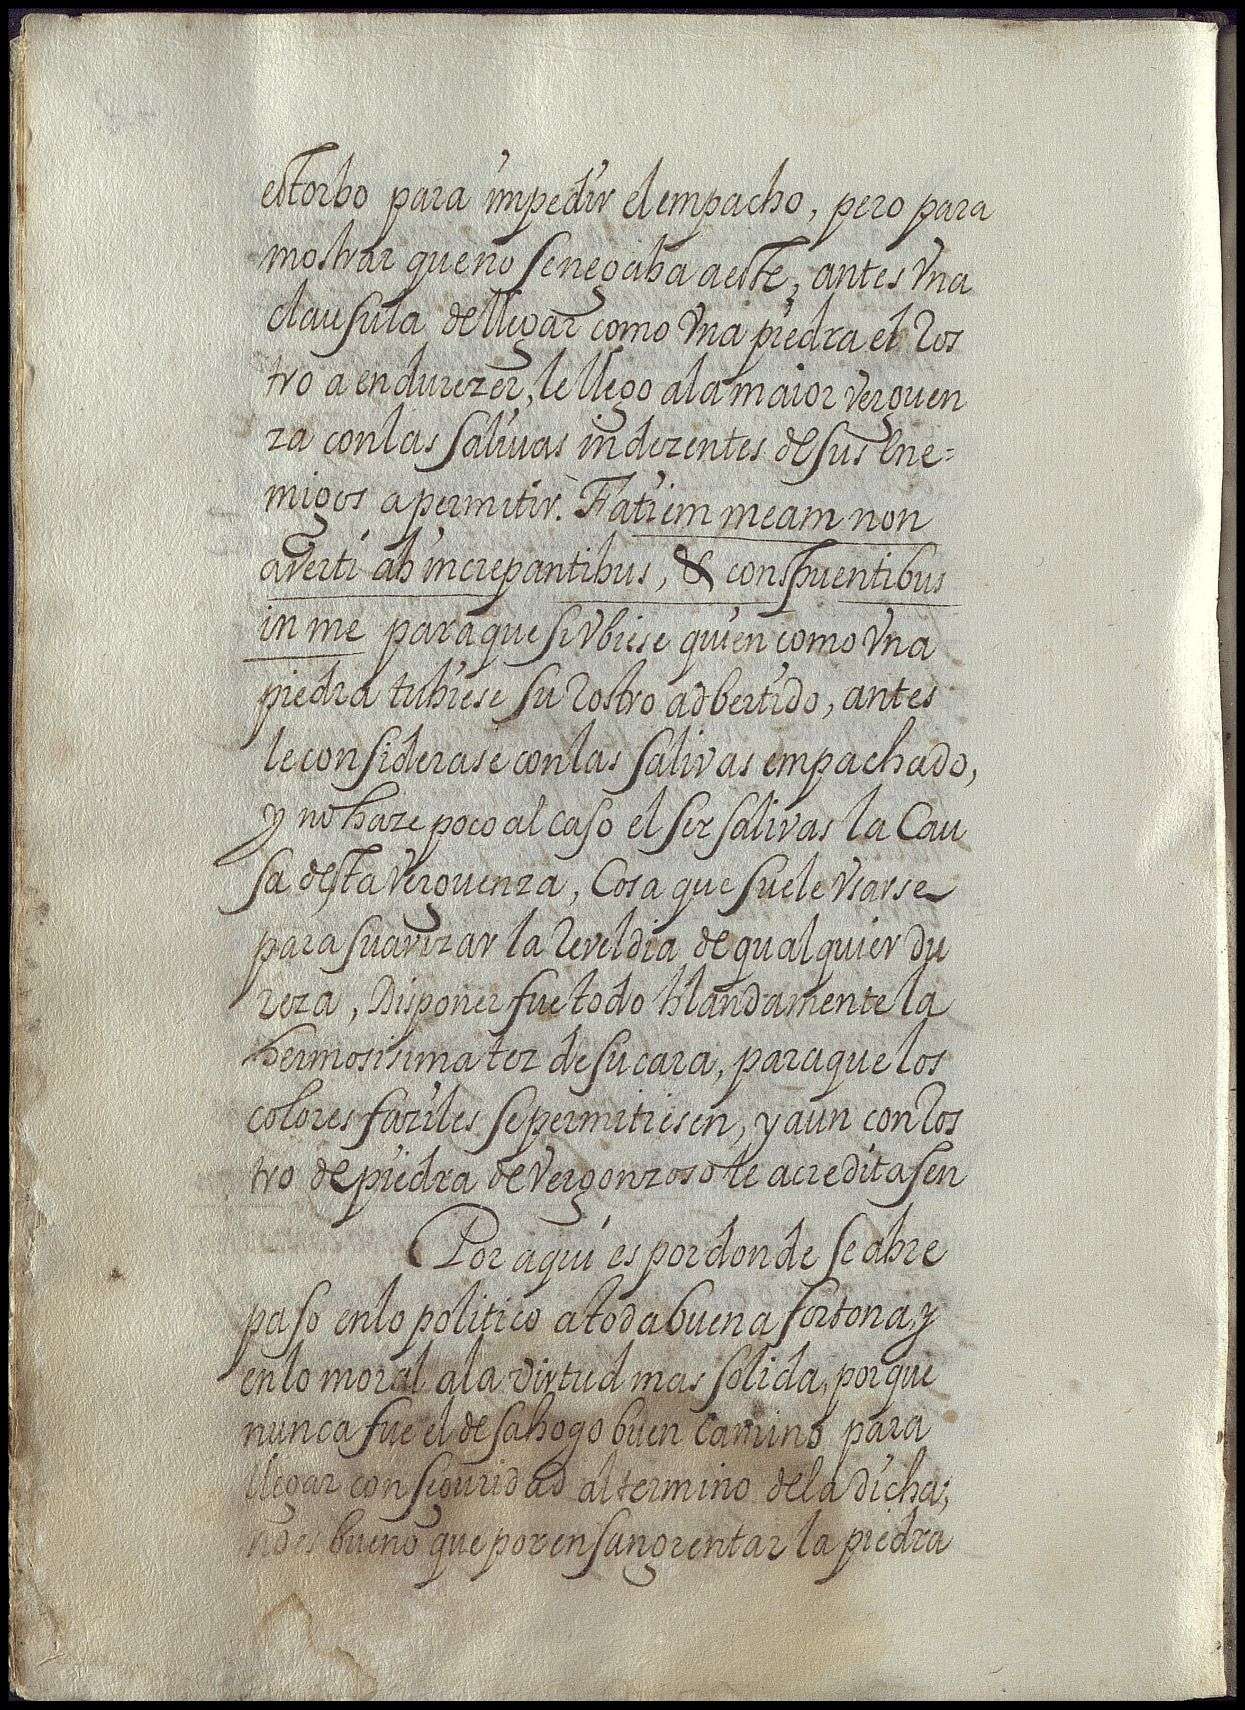 estorbo para impedir el empacho, pero para
mostrar que no se negaba a este, antes vna
clausula de llegar como vna piedra el Ros
tro a endurezer, le llego ala maior verguen
za con las salivas indezentes de sus ene=
migos a permitir. Fatiem meam non
averti ab increpantibus, & conspuentibus
in me para que si vbiese quien como vna
piedra tubiese su Rostro adbertido, antes
le considerase con las salivas empachado,
y no haze poco al caso el ser salivas la Cau
sa desta verguenza, Cosa que suele vsarse
para suavizar la Reveldia de qualquier du
reza, Disponer fue todo blandamente la
hermosisima tez de su cara, para que los
colores faziles se permitiesen, y aun con Ros
tro de piedra de vergonzoso le acreditasen
Por aqui es por donde se abre
paso en lo politico a toda buena fortona, y
en lo moral ala virtud mas solida, porque
nunca fue el desahogo buen camino para
llegar con seguridad al termino dela dicha;
no es bueno que por ensangrentar la piedra